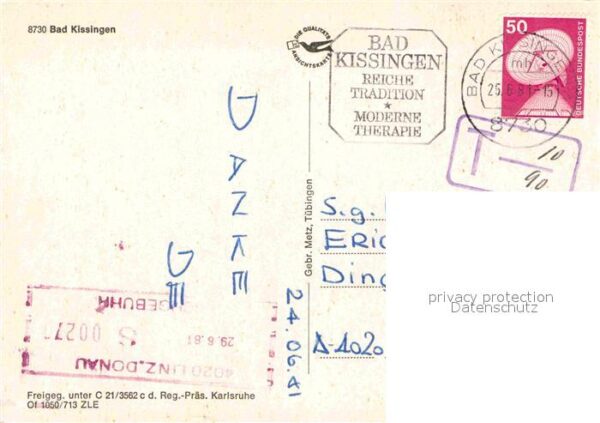 8730 Bad Kissingen
DIE QUALITÄTS
ANSICHTSKARTE
BAD
KISSINGEN
REICHE
TRADITION
*
MODERNE
THERAPIE
BAD KISSINGEN
mb
25.6.81-15
8730
50
DEUTSCHE BUNDESPOST
T
10
90
DANKE
Gebr. Metz, Tübingen
S.g.
ERIC
DING
A-4020
24.06.81
privacy protection
Datenschutz
4020 LINZ, DONAU
29.6.81
S 0027
GEBÜHR
Freigeg. unter C 21/3562 c d. Reg.-Präs. Karlsruhe
Of 1050/713 ZLE